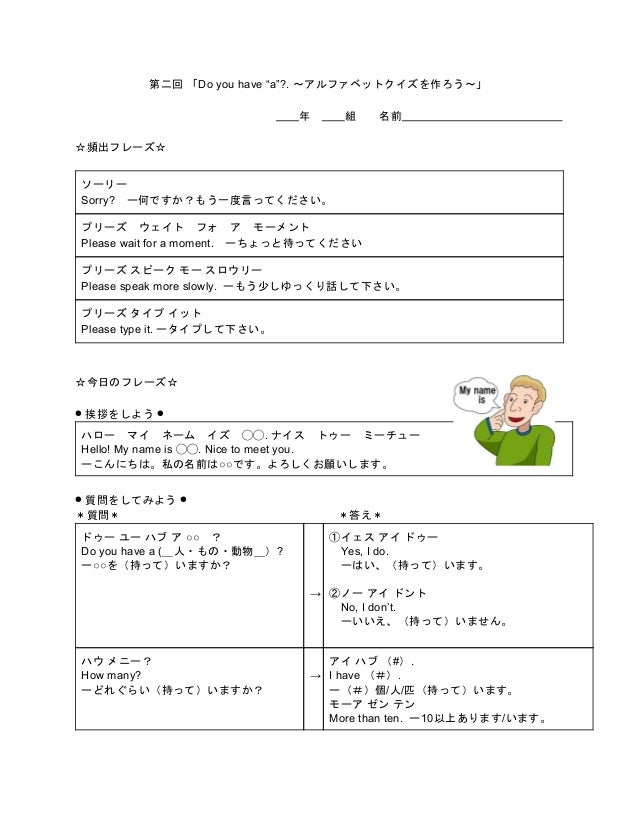 第二回 「Do you have “a”?. ～アルファベットクイズを作ろう～」
____年 ____組 名前____________________________
☆頻出フレーズ☆
ソーリー
Sorry? ー何ですか？もう一度言ってください。
プリーズ ウェイト フォ ア モーメント
Please wait for a moment. ーちょっと待ってください
プリーズ スピーク モー スロウリー
Please speak more slowly. ーもう少しゆっくり話して下さい。
プリーズ タイプ イット
Please type it. ータイプして下さい。
☆今日のフレーズ☆
My name
is
●挨拶をしよう●
ハロー マイ ネーム イズ ◯◯. ナイス トゥー ミーチュー
Hello! My name is ◯◯. Nice to meet you.
ーこんにちは。私の名前は○○です。よろしくお願いします。
●質問をしてみよう●
＊質問＊ ＊答え＊
ドゥー ユー ハブ ア ○○ ？
Do you have a (__人・もの・動物__）?
ー○○を（持って）いますか？
→
①イェス アイ ドゥー
Yes, I do.
ーはい、（持って）います。
②ノー アイ ドント
No, I don’t.
ーいいえ、（持って）いません。
ハウ メニー？
How many?
ーどれぐらい（持って）いますか？
→
アイ ハブ （#）.
I have （＃）.
ー（＃）個/人/匹（持って）います。
モーア ゼン テン
More than ten. ー10以上あります/います。